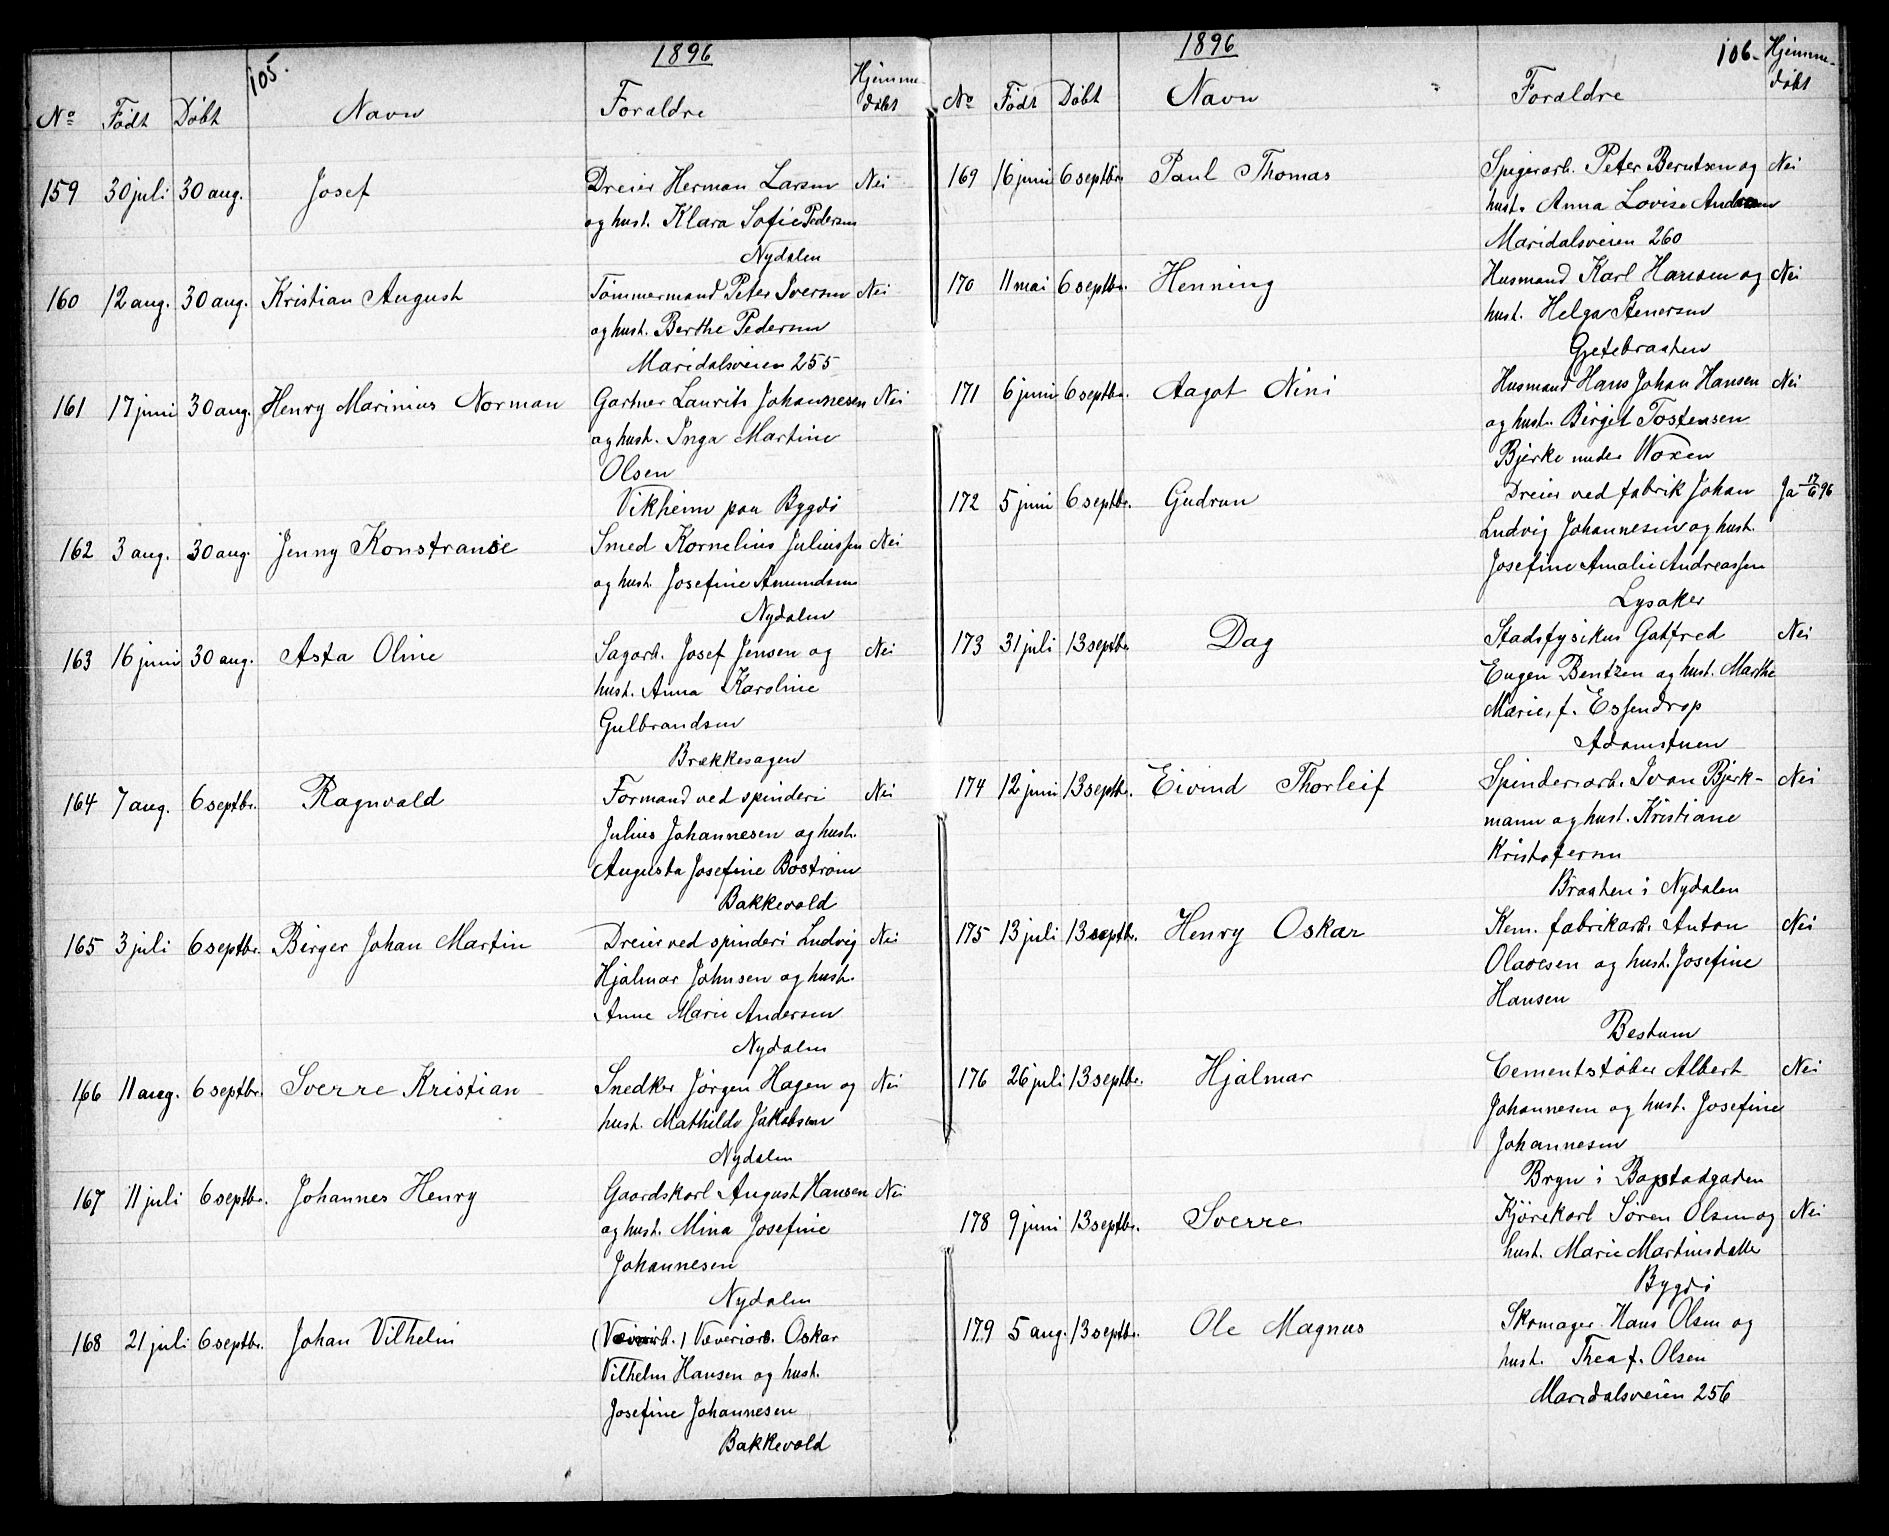 105.
1896
No Født Døbt Navn Foraldre Hjemme-
døbt
159 30 juli 30 aug. Josef Dreier Herman Larsen Nei
og hust. Klara Sofie Pedersen
Nydalen
160 12 aug. 30 aug. Kristian August Tømmermand Peter Iversen Nei
og hust. Berthe Pedersen
Maridalsveien 255
161 17 juni 30 aug. Henry Marinius Norman Gartner Laurits Johannesen Nei
og hust. Inga Martine
Olsen
Vikheim paa Bygdø
162 3 aug. 30 aug. Jenny Konstranse Smed Kornelius Juliussen Nei
og hust. Josefine Amundsen
Nydalen
163 16 juni 30 aug. Asta Oline Sagarb. Josef Jensen og Nei
hust. Anna Karoline
Gulbrandsen
Brækkesagen
164 7 aug. 6 septbr. Ragnvald Formand ved spinderi Nei
Julius Johannesen og hust.
Augusta Josefine Bostrøm
Bakkevold
165 3 juli 6 septbr. Birger Johan Martin Dreier ved spinderi Ludvig Nei
Hjalmar Johnsen og hust.
Anne Marie Andersen
Nydalen
166 11 aug. 6 septbr. Sverre Kristian Snedker Jørgen Hagen og Nei
hust. Mathilde Jakobsen
Nydalen
167 11 juli 6 septbr. Johannes Henry Gaardskarl August Hansen Nei
og hust. Mina Josefine
Johannesen
Nydalen
168 21 juli 6 septbr. Johan Vilhelm Væveriarb. Oskar
Vilhelm Hansen og hust.
Josefine Johannesen
Bakkevold
1896
106.
No Født Døbt Navn Foraldre Hjemme-
døbt
169 16 juni 6 septbr. Paul Thomas Spigerarb. Peter Berntsen og Nei
hust. Anna Lovise Andersen
Maridalsveien 260
170 11 mai 6 septbr. Henning Husmand Karl Hansen og Nei
hust. Helga Stenersen
Gjetebraaten
171 6 juni 6 septbr. Aagot Nini Husmand Hans Johan Hansen Nei
og hust. Birgit Tostensen
Bjerke under Voxen
172 5 juni 6 septbr. Gudrun Dreier ved fabrik Johan Ja 17/6 96
Ludvig Johannesen og hust.
Josefine Amalie Andreassen
Lysaker
173 31 juli 13 septbr. Dag Stadsfysikus Gotfred Nei
Eugen Bentzen og hust. Marthe
Marie, f. Essendrop
Adamstuen
174 12 juni 13 septbr. Eivind Thorleif Spinderiarb. Ivan Bjerk- Nei
mann og hust. Kristiane
Kristofersen
Braaten i Nydalen
175 13 juli 13 septbr. Henry Oskar Kem. fabrikarb. Anton Nei
Olavesen og hust. Josefine
Hansen
Bestum
176 26 juli 13 septbr. Hjalmar Cementstøber Albert Nei
Johannesen og hust. Josefine
Johannesen
Bryn i Bapstadgaden
178 9 juni 13 septbr. Sverre Kjørekarl Søren Olsen og Nei
hust. Marie Martinsdatter
Bygdø
179 5 aug. 13 septbr. Ole Magnus Skomager Hans Olsen og
hust. Thea f. Olsen
Maridalsveien 256